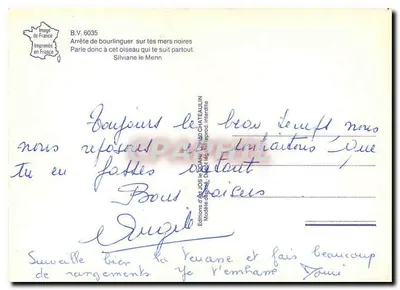 Image
de France
Imprimée
en France
B.V. 6035
Arrête de bourlinguer sur tes mers noires
Parle donc à cet oiseau qui te suit partout.
Silviane le Menn
Toujours le beau temps nous
nous reposons et souhaitons que
tu en fasses autant
Bons baisers
Surveille bien la terrasse et fais beaucoup
de rangements Je t'embrasse
Editions d'art JOS LE DOARE, 29150 CHATEAULIN
Modèle déposé reprod. interdite